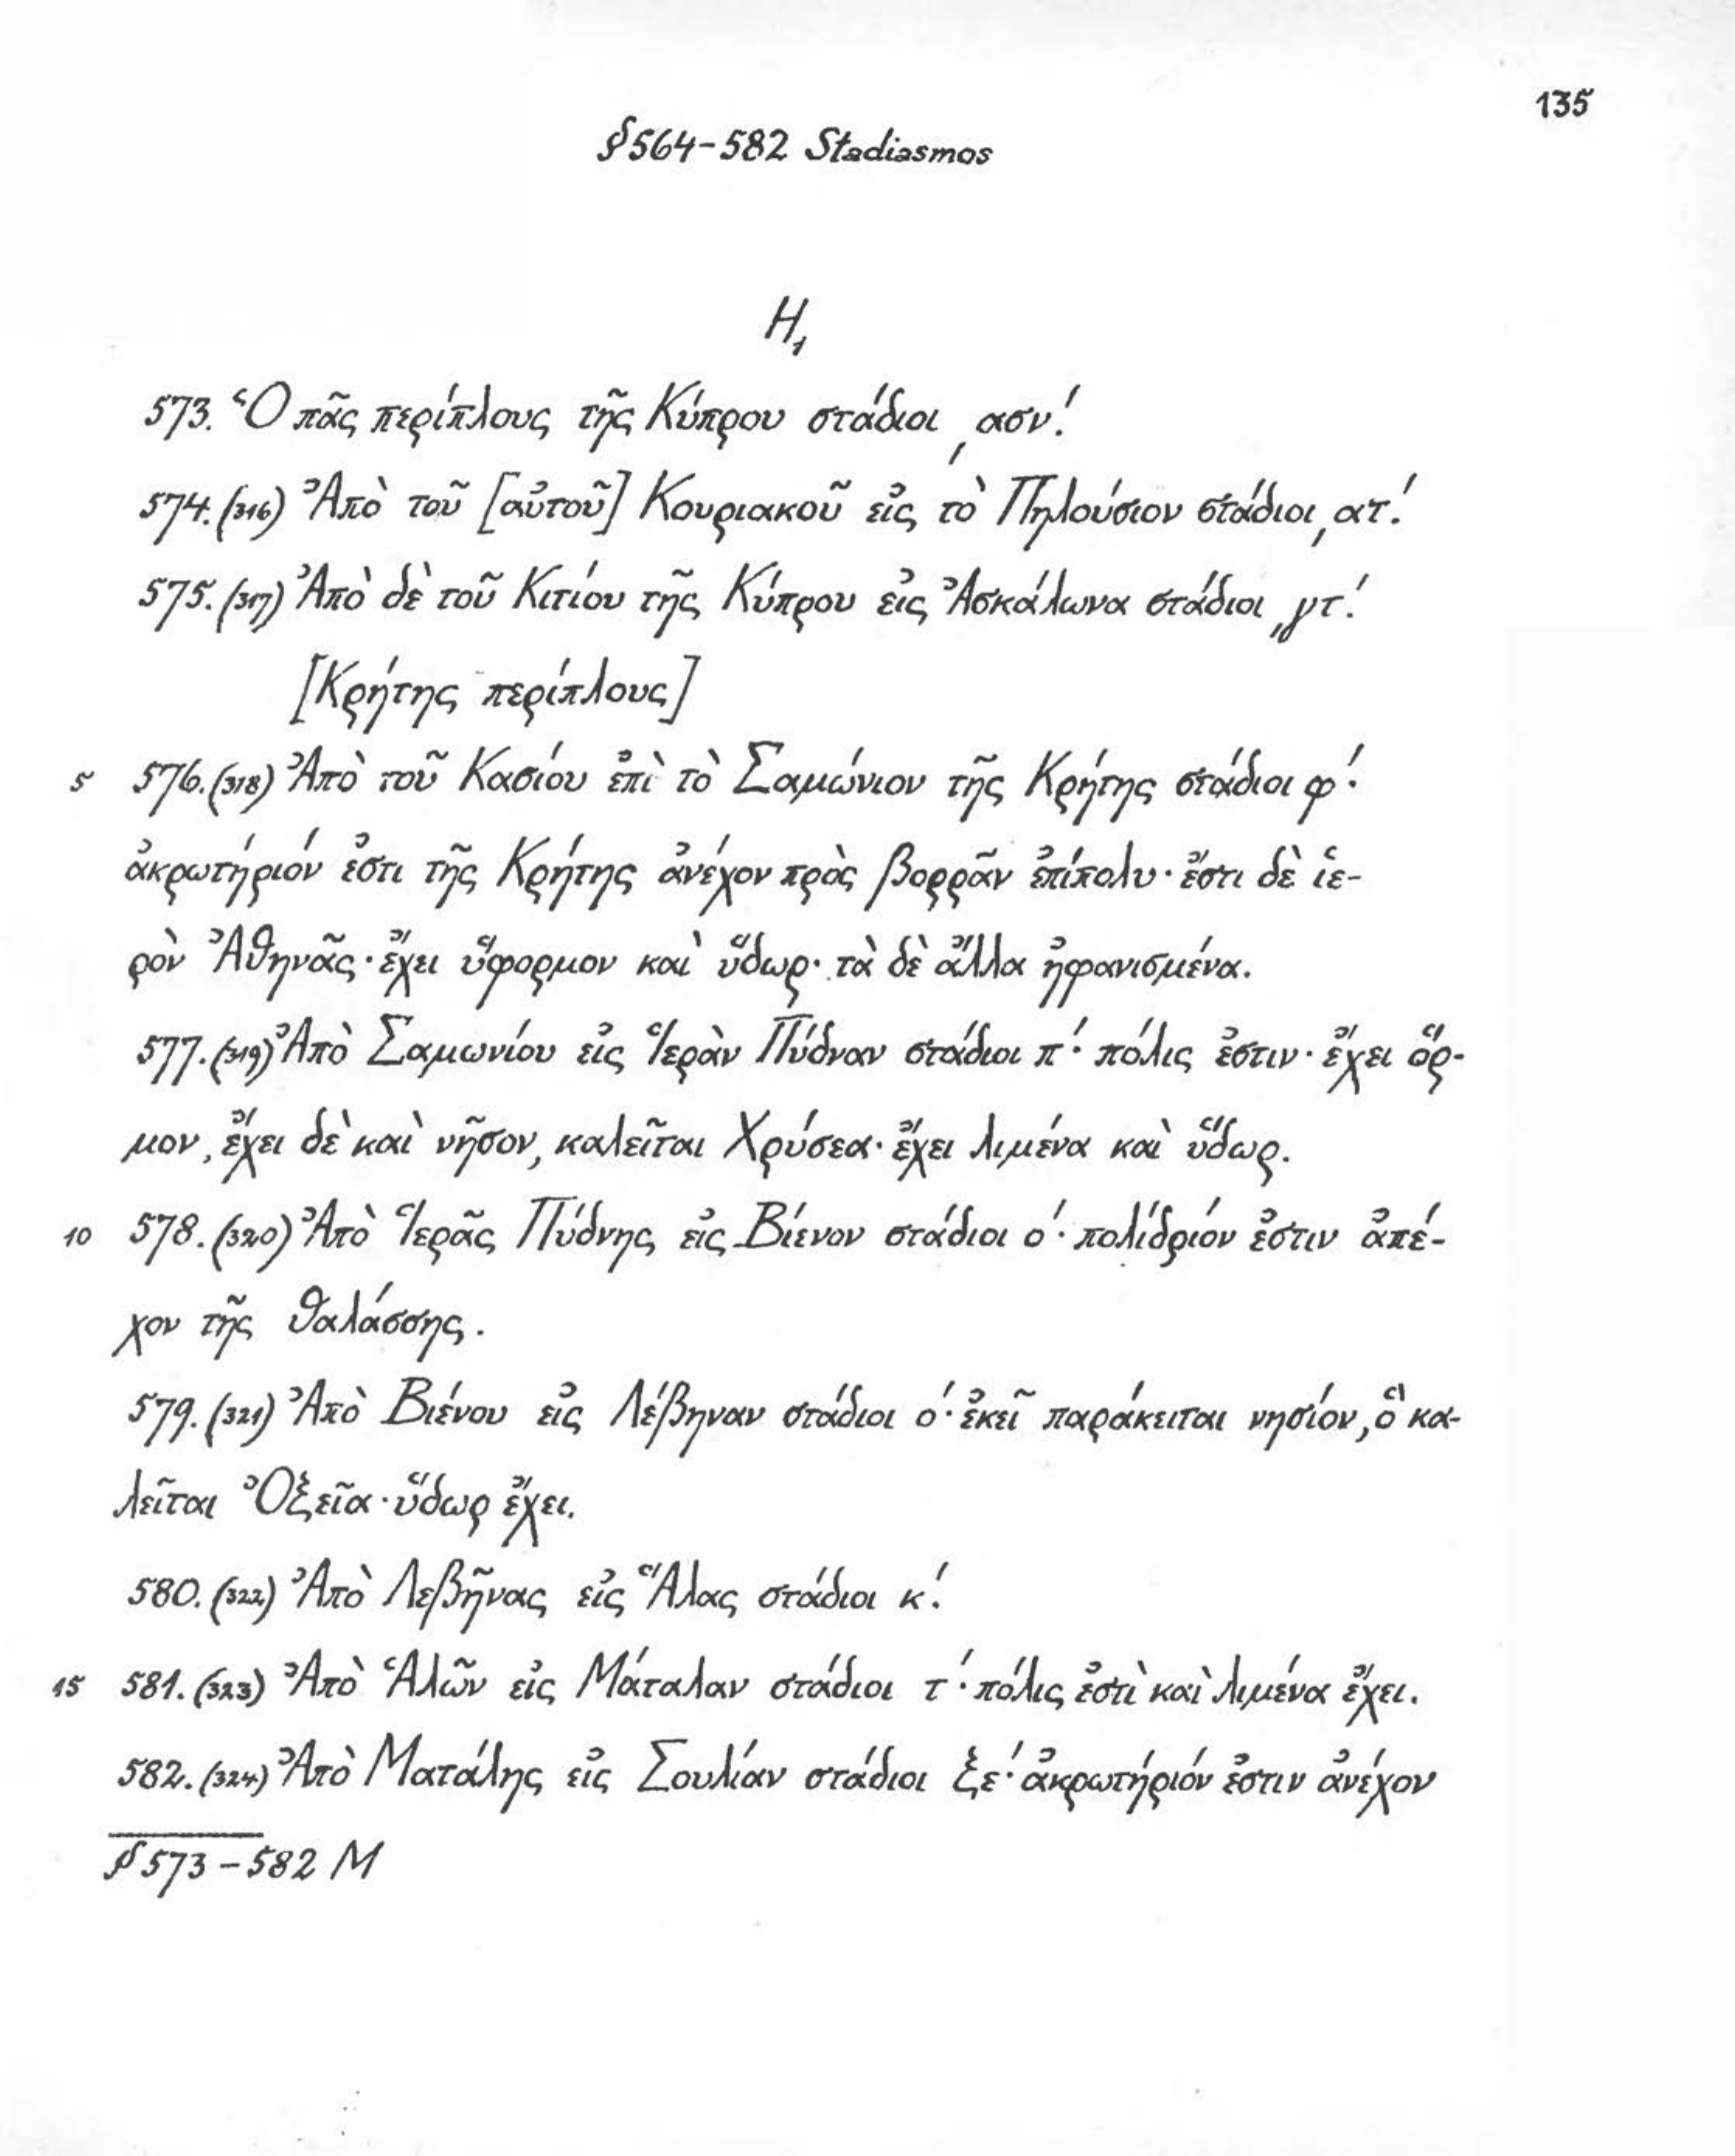 135
§564-582 Stadiasmos
H₁
573. Ὁ πᾶς περίπλους τῆς Κύπρου στάδιοι ͵ασν′.
574. (316) Ἀπὸ τοῦ [αὐτοῦ] Κουριακοῦ εἰς τὸ Πηλούσιον στάδιοι ͵ατ′.
575. (317) Ἀπὸ δὲ τοῦ Κιτίου τῆς Κύπρου εἰς Ἀσκάλωνα στάδιοι ͵γτ′.
[Κρήτης περίπλους]
5 576. (318) Ἀπὸ τοῦ Κασίου ἐπὶ τὸ Σαμώνιον τῆς Κρήτης στάδιοι φ′·
ἀκρωτήριόν ἐστι τῆς Κρήτης ἀνέχον πρὸς βορρᾶν ἐπίπολυ· ἔστι δὲ ἱε-
ρὸν Ἀθηνᾶς· ἔχει ὕφορμον καὶ ὕδωρ· τὰ δὲ ἄλλα ἠφανισμένα.
577. (319) Ἀπὸ Σαμωνίου εἰς Ἱερὰν Πύδναν στάδιοι π′· πόλις ἐστιν· ἔχει ὅρ-
μον, ἔχει δὲ καὶ νῆσον, καλεῖται Χρύσεα· ἔχει λιμένα καὶ ὕδωρ.
10 578. (320) Ἀπὸ Ἱερᾶς Πύδνης εἰς Βίενον στάδιοι ο′· πολίδριόν ἐστιν ἀπέ-
χον τῆς θαλάσσης.
579. (321) Ἀπὸ Βιένου εἰς Λέβηναν στάδιοι ο′· ἐκεῖ παράκειται νησίον, ὃ κα-
λεῖται Ὀξεῖα· ὕδωρ ἔχει.
580. (322) Ἀπὸ Λεβῆνας εἰς Ἅλας στάδιοι κ′.
15 581. (323) Ἀπὸ Ἁλῶν εἰς Μάταλαν στάδιοι τ′· πόλις ἐστὶ καὶ λιμένα ἔχει.
582. (324) Ἀπὸ Ματάλης εἰς Σουλίαν στάδιοι ξε′· ἀκρωτήριόν ἐστιν ἀνέχον
§573-582 M